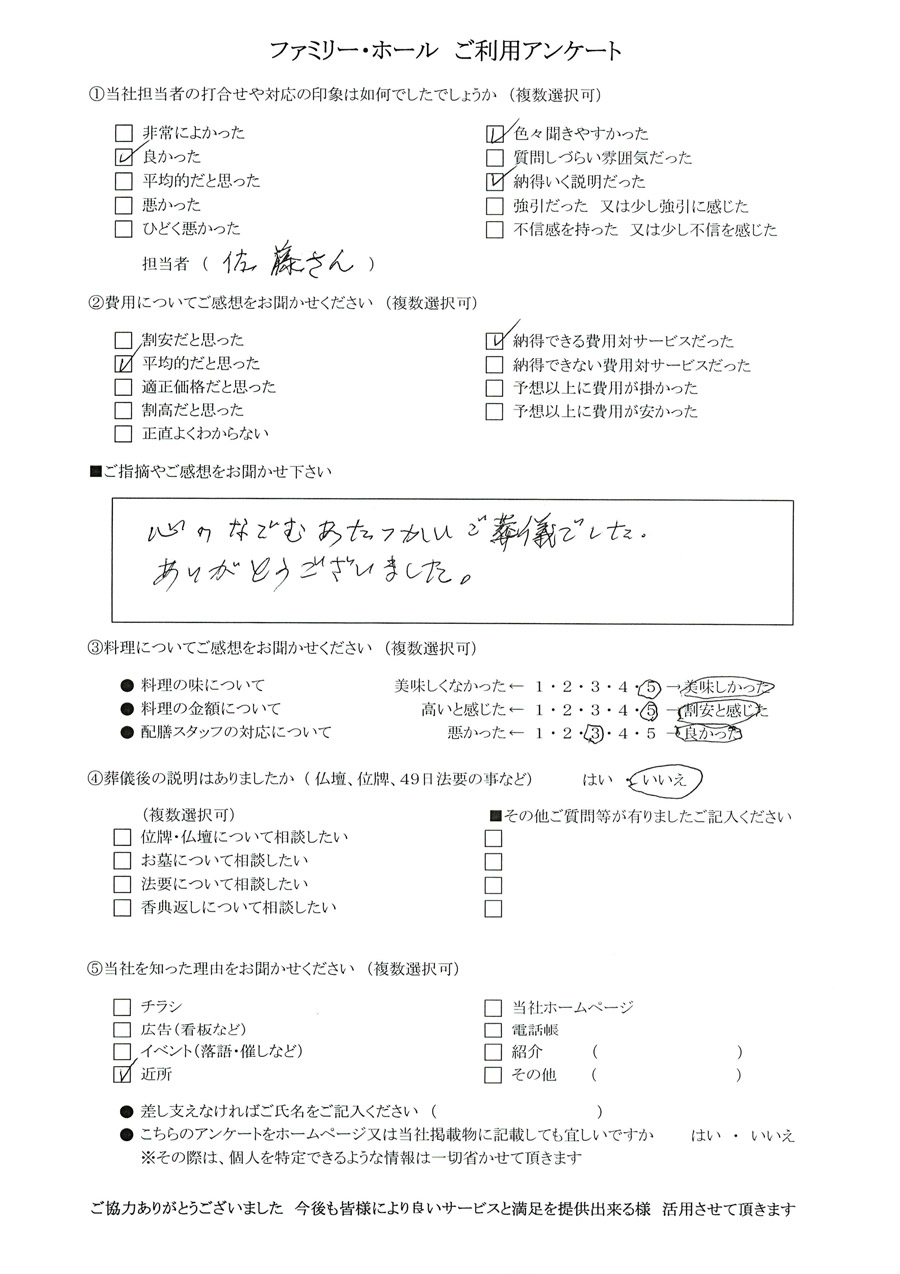 ファミリー・ホール　ご利用アンケート
①当社担当者の打合せや対応の印象は如何でしたでしょうか （複数選択可）
□ 非常によかった　☑ 色々聞きやすかった
☑ 良かった　□ 質問しづらい雰囲気だった
□ 平均的だと思った　☑ 納得いく説明だった
□ 悪かった　□ 強引だった　又は少し強引に感じた
□ ひどく悪かった　□ 不信感を持った　又は少し不信を感じた
担当者 （ 佐藤さん ）
②費用についてご感想をお聞かせください （複数選択可）
□ 割安だと思った　☑ 納得できる費用対サービスだった
☑ 平均的だと思った　□ 納得できない費用対サービスだった
□ 適正価格だと思った　□ 予想以上に費用が掛かった
□ 割高だと思った　□ 予想以上に費用が安かった
□ 正直よくわからない
■ご指摘やご感想をお聞かせ下さい
心のなごむあたたかいご葬儀でした。
ありがとうございました。
③料理についてご感想をお聞かせください （複数選択可）
● 料理の味について　美味しくなかった← 1・2・3・4・5 →美味しかった
● 料理の金額について　高いと感じた← 1・2・3・4・5 →割安と感じた
● 配膳スタッフの対応について　悪かった← 1・2・3・4・5 →良かった
④葬儀後の説明はありましたか （ 仏壇、位牌、49日法要の事など）　はい ・ いいえ
（複数選択可）　■その他ご質問等が有りましたご記入ください
□ 位牌・仏壇について相談したい　□
□ お墓について相談したい　□
□ 法要について相談したい　□
□ 香典返しについて相談したい　□
⑤当社を知った理由をお聞かせください （複数選択可）
□ チラシ　□ 当社ホームページ
□ 広告（看板など）　□ 電話帳
□ イベント（落語・催しなど）　□ 紹介　（　　　）
☑ 近所　□ その他　（　　　）
● 差し支えなければご氏名をご記入ください （　　　）
● こちらのアンケートをホームページ又は当社掲載物に記載しても宜しいですか　はい ・ いいえ
※その際は、個人を特定できるような情報は一切省かせて頂きます
ご協力ありがとうございました　今後も皆様により良いサービスと満足を提供出来る様　活用させて頂きます